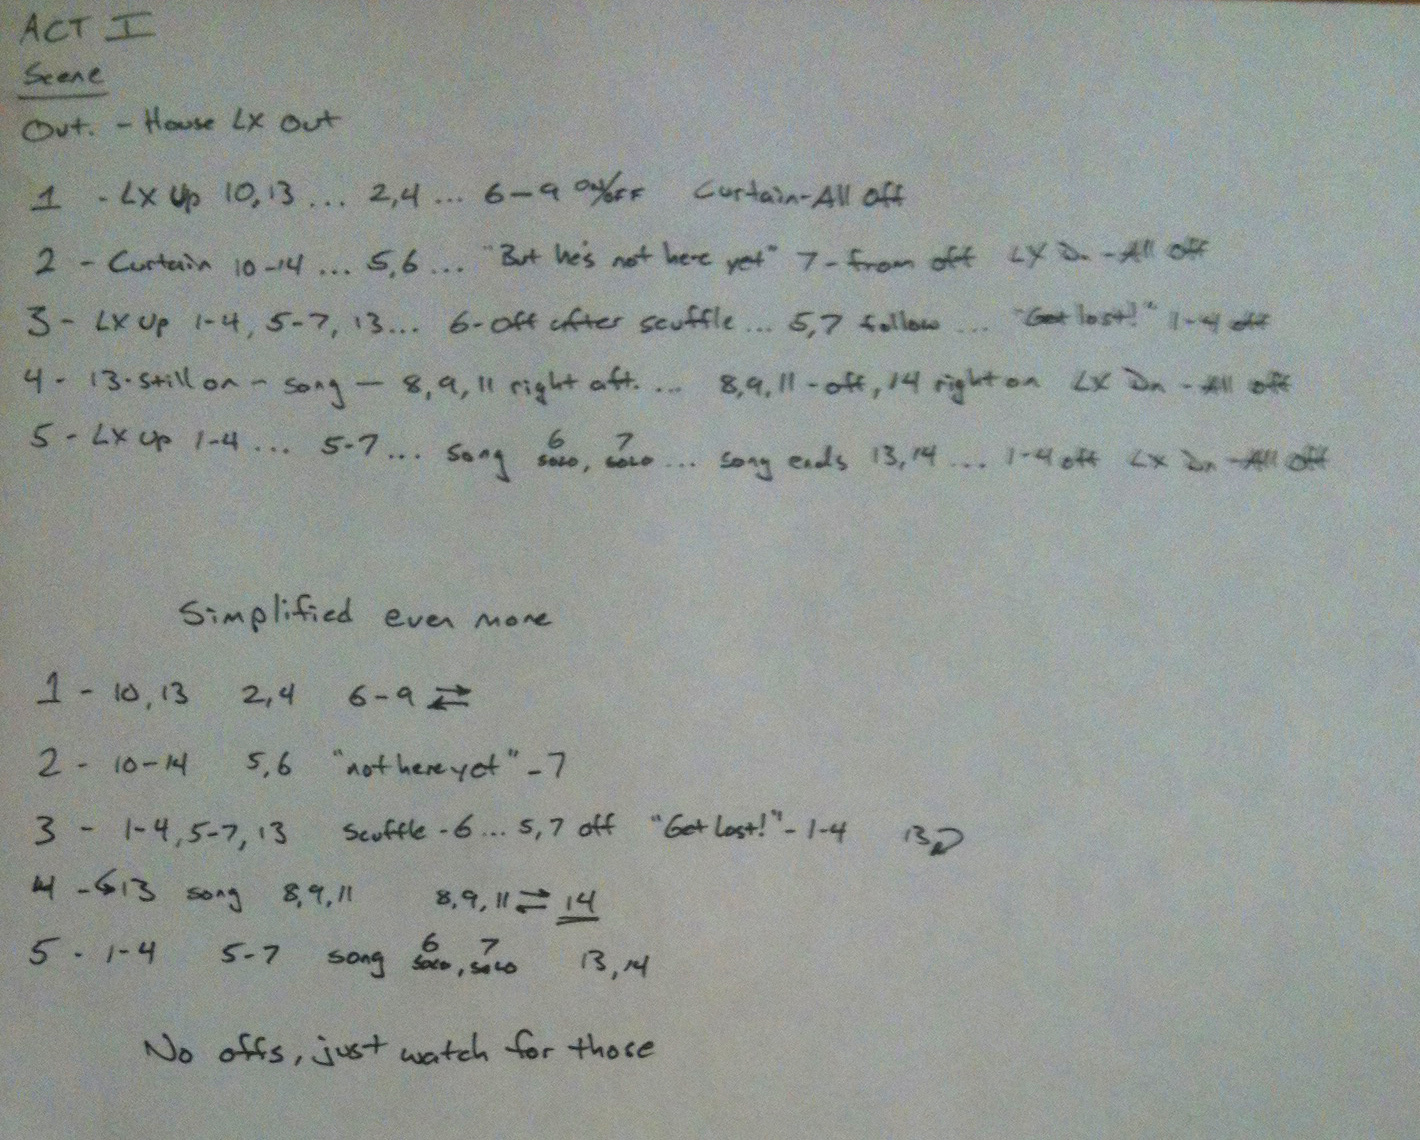 ACT I
Scene
Out. - House LX Out
1 - LX Up 10,13 ... 2,4 ... 6-9 on/off Curtain-All Off
2 - Curtain 10-14 ... 5,6 ... "But he's not here yet" 7-from off LX Dn -All off
3 - LX Up 1-4, 5-7, 13... 6-off after scuffle ... 5,7 follow ... "Get lost!" 1-4 off
4 - 13-still on - song - 8,9,11 right aft. ... 8,9,11-off, 14 right on LX Dn -All off
5 - LX Up 1-4 ... 5-7... song 6 solo, 7 solo ... song ends 13,14 ... 1-4 off LX Dn -All off
Simplified even more
1 - 10,13 2,4 6-9 ⇄
2 - 10-14 5,6 "not here yet" -7
3 - 1-4, 5-7, 13 Scuffle -6... 5,7 off "Get lost!"- 1-4 13⤶
4 -↪13 song 8,9,11 8,9,11 ⇄ 14
5 - 1-4 5-7 song 6 solo, 7 solo 13,14
No offs, just watch for those